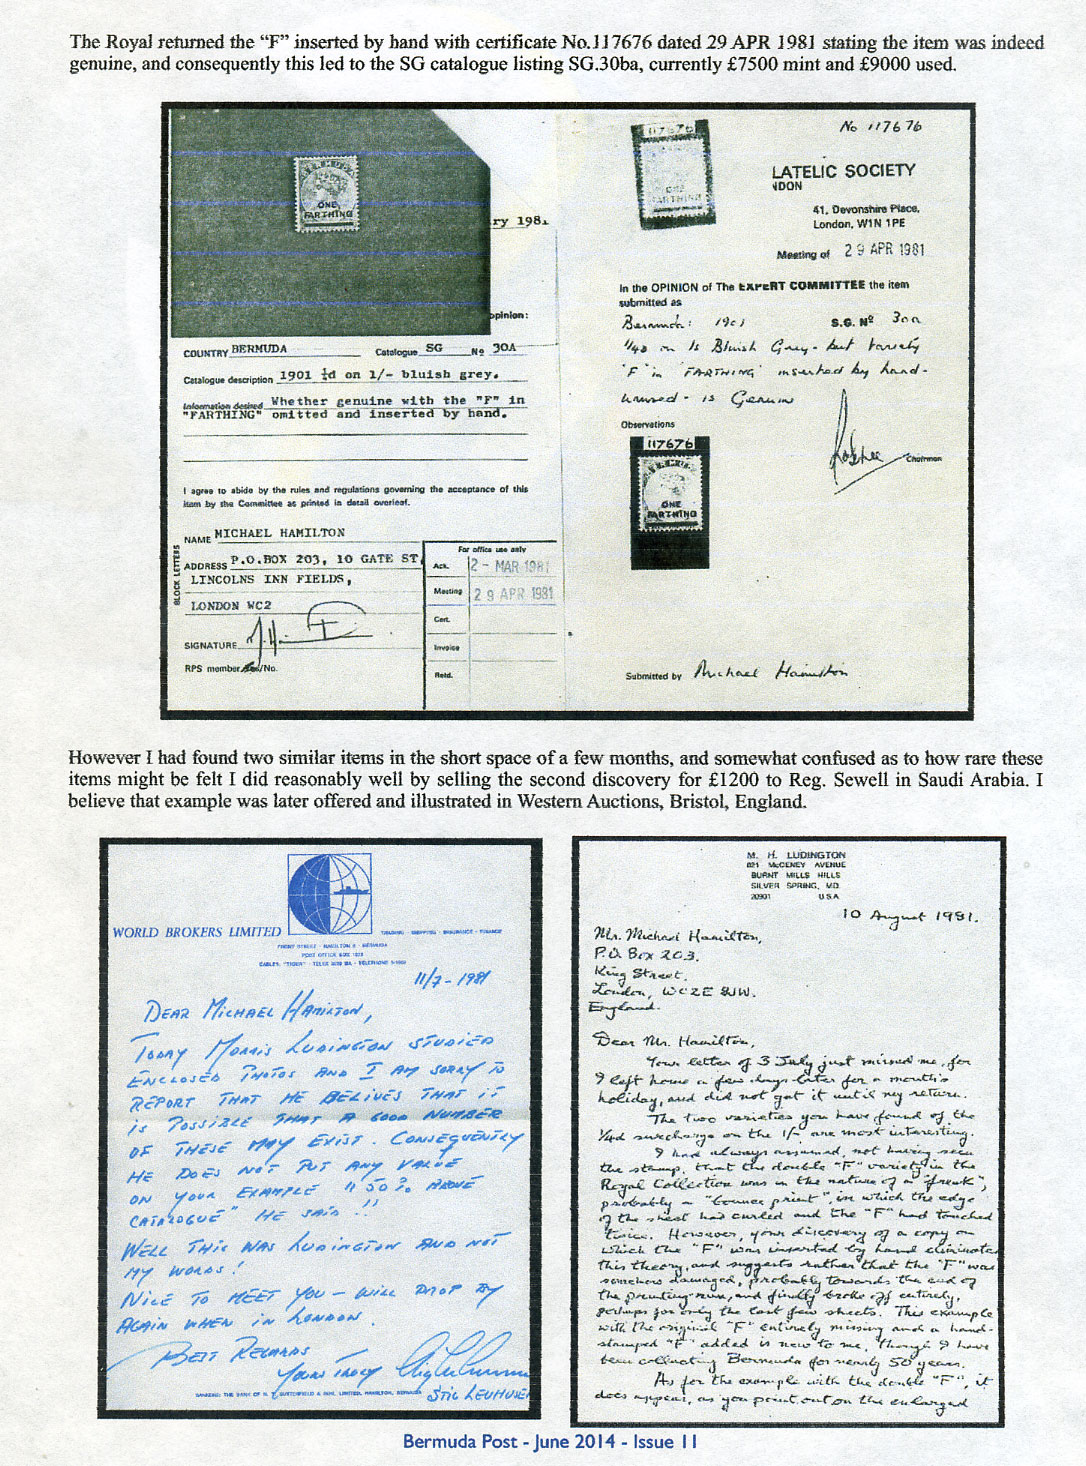 The Royal returned the “F” inserted by hand with certificate No.117676 dated 29 APR 1981 stating the item was indeed
genuine, and consequently this led to the SG catalogue listing SG.30ba, currently £7500 mint and £9000 used.
BERMUDA
ONE
FARTHING
ry 1981
opinion:
COUNTRY BERMUDA Catalogue SG No 30A
Catalogue description 1901 ¼d on 1/- bluish grey.
Information desired Whether genuine with the "F" in
"FARTHING" omitted and inserted by hand.
I agree to abide by the rules and regulations governing the acceptance of this
item by the Committee as printed in detail overleaf.
BLOCK LETTERS
NAME MICHAEL HAMILTON
ADDRESS P.O.BOX 203, 10 GATE ST,
LINCOLNS INN FIELDS,
LONDON WC2
SIGNATURE
RPS member /No.
For office use only
Ack. 2 - MAR 1981
Meeting 29 APR 1981
Cert.
Invoice
Retd.
117676
ONE
FARTHING
No 117676
LATELIC SOCIETY
NDON
41, Devonshire Place,
London, W1N 1PE
Meeting of 29 APR 1981
In the OPINION of The EXPERT COMMITTEE the item
submitted as
Bermuda: 1901 S.G. Nº 30a
¼d on 1s Bluish Grey - but variety
'F' in 'FARTHING' inserted by hand -
unused - is Genuine
Observations
117676
ONE
FARTHING
Chairman
Submitted by Michael Hamilton
However I had found two similar items in the short space of a few months, and somewhat confused as to how rare these
items might be felt I did reasonably well by selling the second discovery for £1200 to Reg. Sewell in Saudi Arabia. I
believe that example was later offered and illustrated in Western Auctions, Bristol, England.
WORLD BROKERS LIMITED
TRADING - SHIPPING - INSURANCE - FINANCE
FRONT STREET - HAMILTON 5 - BERMUDA
POST OFFICE BOX
CABLES: "TIGER" - TELEX BA - TELEPHONE
11/7 - 1981
DEAR MICHAEL HAMILTON,
TODAY MORRIS LUDINGTON STUDIED
ENCLOSED PHOTOS AND I AM SORRY TO
REPORT THAT HE BELIVES THAT IT
IS POSSIBLE THAT A GOOD NUMBER
OF THESE MAY EXIST. CONSEQUENTLY
HE DOES NOT PUT ANY VALUE
ON YOUR EXAMPLE "50% ABOVE
CATALOGUE" HE SAID !!
WELL THIS WAS LUDINGTON AND NOT
MY WORDS!
NICE TO MEET YOU - WILL DROP BY
AGAIN WHEN IN LONDON.
BEST REGARDS
YOURS TRULY
BANKERS: THE BANK OF N. T. BUTTERFIELD & SON, LIMITED, HAMILTON, BERMUDA
STIG
M. H. LUDINGTON
821 McCENEY AVENUE
BURNT MILLS HILLS
SILVER SPRING, MD.
20901 U.S.A.
10 August 1981.
Mr. Michael Hamilton,
P.O. Box 203.
King Street.
London, WC2E 8JW.
England.
Dear Mr. Hamilton,
Your letter of 3 July just missed me, for
I left home a few days later for a month's
holiday, and did not get it until my return.
The two varieties you have found of the
¼d surcharge on the 1/- are most interesting.
I had always assumed, not having seen
the stamp, that the double "F" variety in the
Royal Collection was in the nature of a "freak",
probably a "bounce print" in which the edge
of the sheet had curled and the "F" had touched
twice. However, your discovery of a copy on
which the "F" was inserted by hand eliminates
this theory, and suggests rather that the "F" was
somehow damaged, probably towards the end of
the printing run, and finally broke off entirely,
perhaps for only the last few sheets. This example
with the original "F" entirely missing and a hand-
stamped "F" added is new to me, though I have
been collecting Bermuda for nearly 50 years.
As for the example with the double "F", it
does appear, as you point out on the enlarged
Bermuda Post - June 2014 - Issue 11